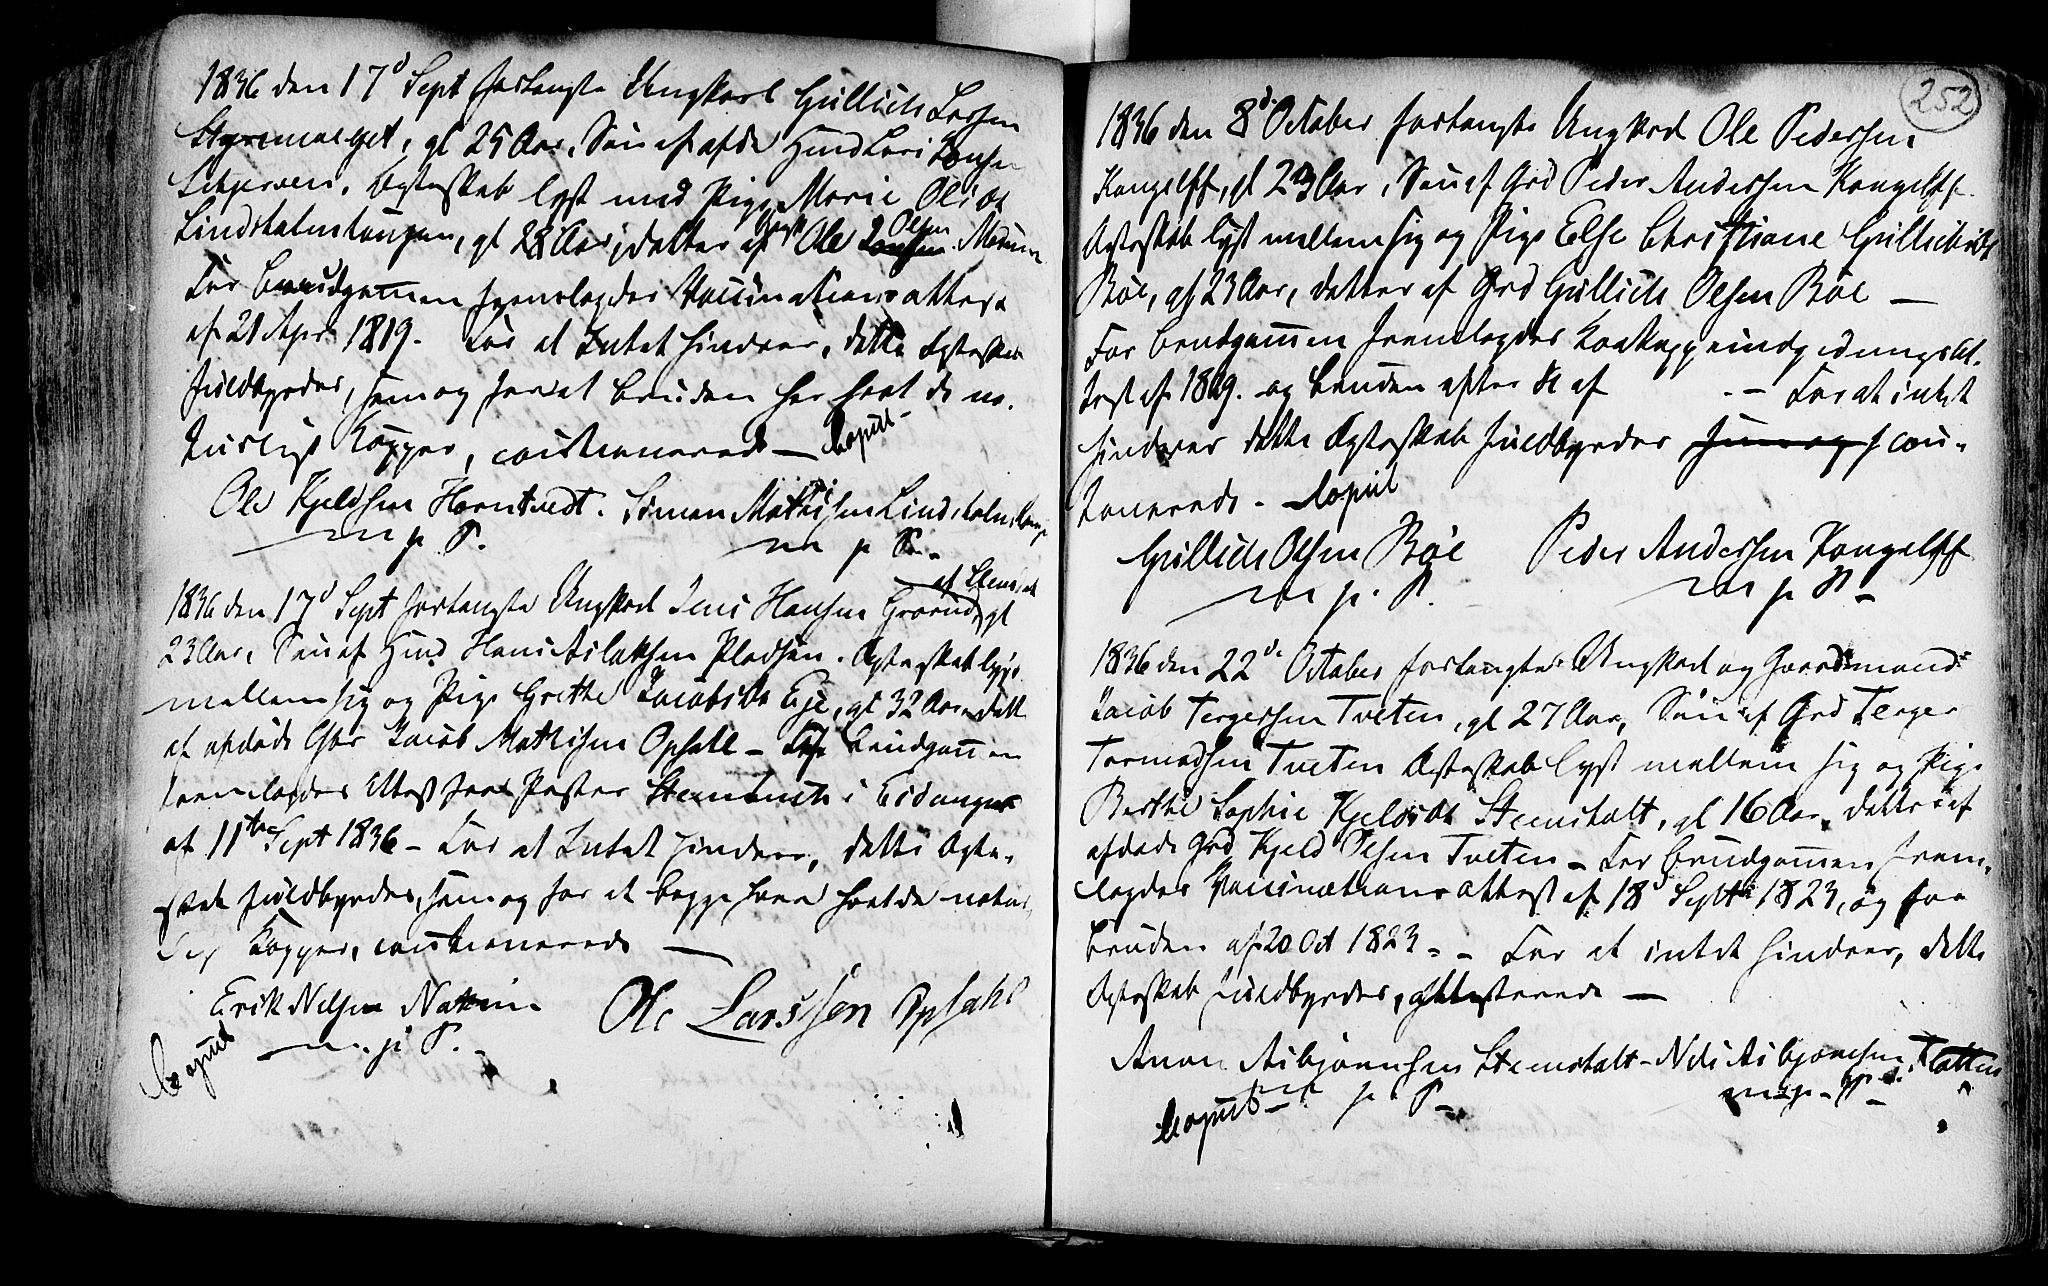 1836 den 17d Sept forlangte Ungkarl Gullich Larsen
gl 25 Aar, Søn af afdø Huusd Lars
Ægteskab lyst med Pige Marie Olsdt
Lindstalmtangen, gl 28 Aar, datter af Ole Olsen
For Brudgommen fremlagdes Vaccinations attest
af 21 Apr 1819. For at Intet hindrer, dette Ægteskab
fuldbyrdes, som og for at Bruden har havt de na-
turligt Kopper, cautionerede — Copul
Ole Kjeldsen Horntvedt. Simon Mathisen Lindstalmtang
m p P. m p P.
1836 den 17d Sept forlangte Ungkarl Jens Hansen Grorud, gl
23 Aar, Søn af Huusd Hans Aslaksen Pladsen. Ægteskab lyst
mellem sig og Pige Grethe Jacobsdt Eje, gl 32 Aar, datt
af afdøde Gbr Jacob Mathisen Opsall – For Brudgommen
fremlagdes Attest fra Pastor Steenbuch i Eidanger
af 11te Sept 1836 – For at Intet hindrer, dette Ægte-
skab fuldbyrdes, som og for at begge have havt de natur-
lige Kopper, cautionerede —
Erik Nilsen Ole Larssen Opsahl
m. p P.
Copul
252
1836 den 8d October forlangte Ungkarl Ole Pedersen
gl 23 Aar, Søn af Grd Peder Andersen
Ægteskab lyst mellem sig og Pige Else Christiane Gullichsdt
Böe, gl 23 Aar, datter af Grd Gullich Olsen Böe —
For Brudgommen fremlagdes Kokoppeindpodningsat-
test af 1819. og Bruden efter af – For at intet
hindrer dette Ægteskab fuldbyrdes som og cau-
tionerede - Copul
Gullich Olsen Böe Peder Andersen
m p. P. m p P
1836 den 22d October forlangte Ungkarl og Gaardmand
Jacob Tergersen Tveten, gl 27 Aar, Søn af Grd Terger
Tormodsen Tveten Ægteskab lyst mellem sig og Pige
Berthe Sophie Kjeldsdt Stemstalt, gl 16 Aar, datter af
afdøde Grd Kjeld Olsen Tveten – For Brudgommen frem-
lagdes Vaccinations attest af 18d Septbr 1823, og for
Bruden af 20 Oct 1823 – For at intet hindrer, dette
Ægteskab fuldbyrdes, attesterede —
Anon Asbjørnsen Stemstalt – Nils Asbjørnsen
m p P m p P
Copul